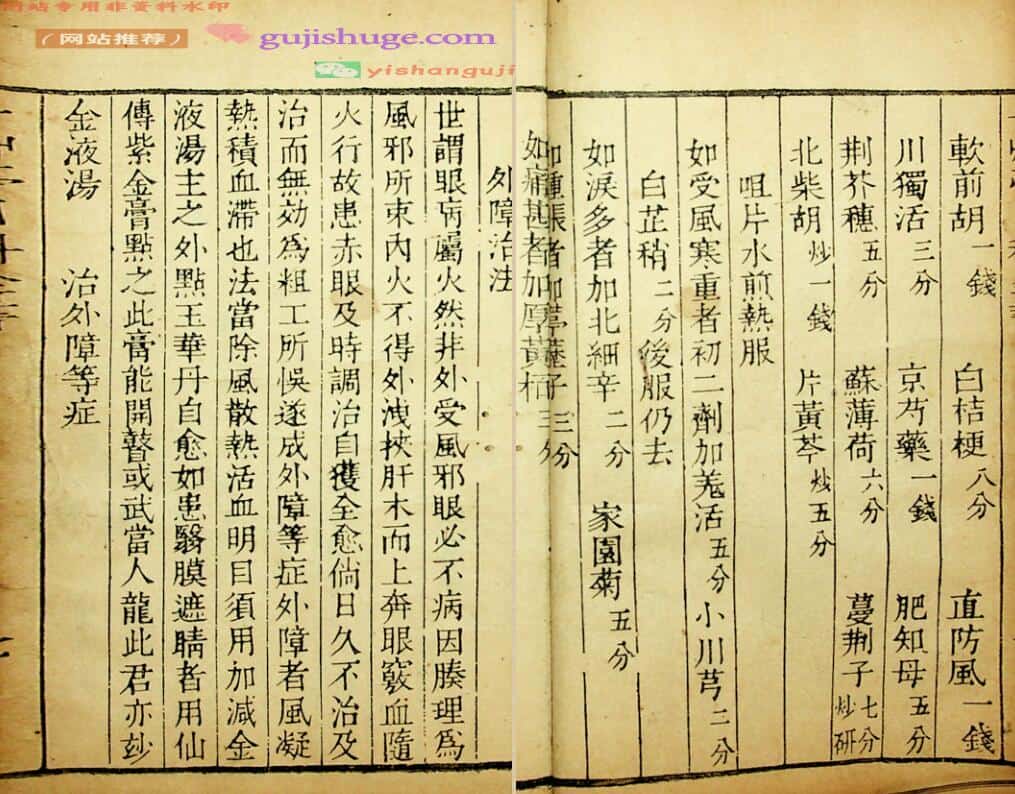 网站专用非资料水印
（网站推荐）
gujishuge.com
yishanguji
軟前胡一錢 白桔梗八分 直防風一錢
川獨活三分 京芍藥一錢 肥知母五分
荆芥穗五分 蘇薄荷六分 蔓荆子七分炒研
北柴胡炒一錢 片黃芩炒五分
咀片水煎熱服
如受風寒重者初二劑加羗活五分 小川芎二分
白芷稍二分後服仍去
如淚多者加北細辛二分 家園菊五分
如腫脹者加葶藶子三分
如痛甚者加厚黃柏三分
外障治法
世謂眼病屬火然非外受風邪眼必不病因腠理爲
風邪所束內火不得外洩挾肝木而上奔眼竅血隨
火行故患赤眼及時調治自獲全愈倘日久不治及
治而無効爲粗工所悞遂成外障等症外障者風凝
熱積血滯也法當除風散熱活血明目須用加減金
液湯主之外點玉華丹自愈如患翳膜遮睛者用仙
傳紫金膏點之此膏能開瞽或武當人龍此君亦玅
金液湯 治外障等症